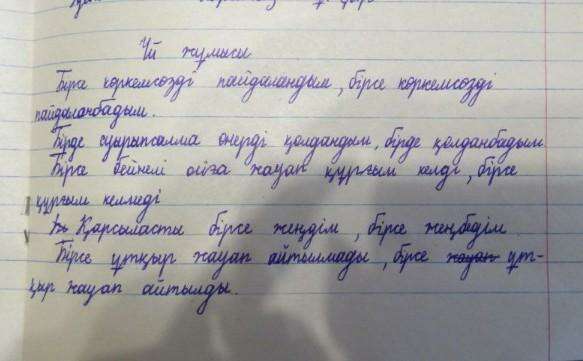 Үй жұмысы
Бірсе көркемсөзді пайдаландым, бірсе көркемсөзді
пайдаланбадым.
Бірде суырыпсалма өнерді қолдандым, бірде қолданбадым
Бірсе бейнелі ойға жауап құрғым келді, бірсе
құрғым келмеді
Қарсыласты бірсе жеңдім, бірсе жеңбедім
Бірсе ұтқыр жауап айтылмады, бірсе жауап ұт-
қыр жауап айтылды.